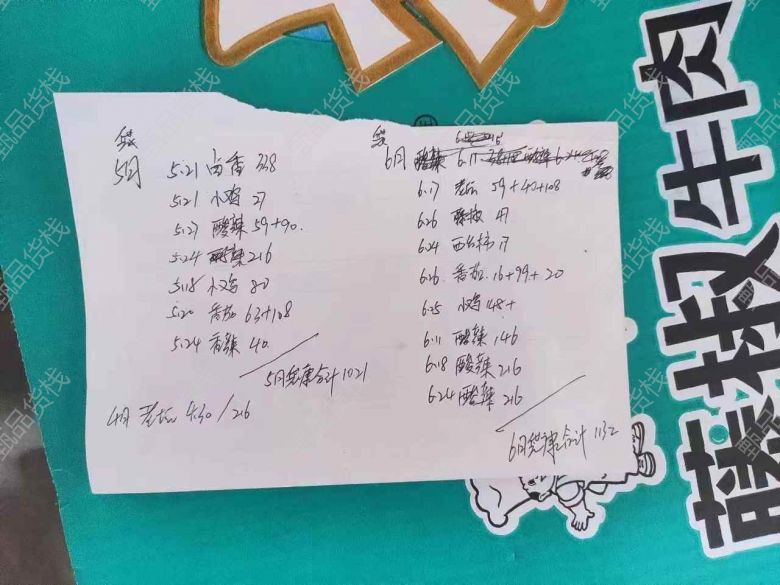 5月
5.21 卤香 338
5.21 小鸡 27
5.23 酸辣 59+90
5.24 酸辣 216
5.18 小鸡 80
5.20 番茄 63+108
5.24 香辣 40
5月 合计 1021
4月 老坛 4.30/216
6月 酸辣 6.17
6.17 老坛 59+40+108
6.26 藤椒 47
6.24 西红柿 17
6.26 番茄 16+99+20
6.25 小鸡 148+
6.11 酸辣 146
6.18 酸辣 216
6.24 酸辣 216
6月 合计 1132
藤椒牛肉
甄品货栈